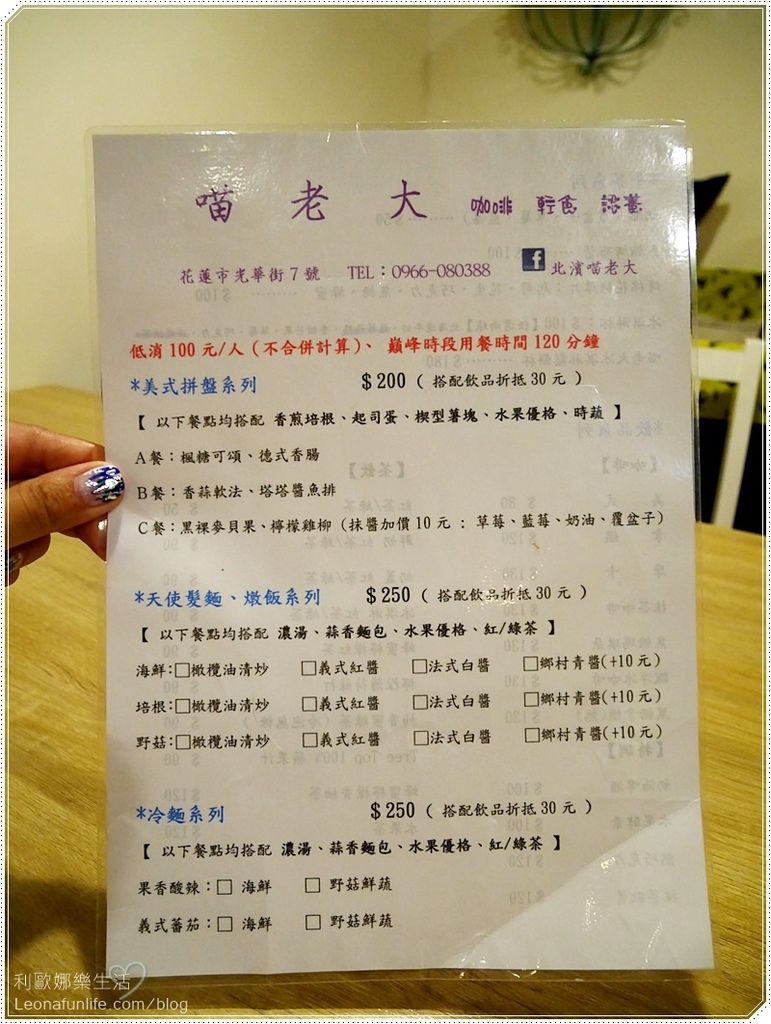 喵老大 咖啡 輕食 認養
花蓮市光華街7號 TEL：0966-080388 f 北濱喵老大
低消100元/人(不合併計算)、巔峰時段用餐時間120分鐘
*美式拼盤系列 $200 ( 搭配飲品折抵30元 )
【 以下餐點均搭配 香煎培根、起司蛋、楔型薯塊、水果優格、時蔬 】
A餐：楓糖可頌、德式香腸
B餐：香蒜軟法、塔塔醬魚排
C餐：黑裸麥貝果、檸檬雞柳 (抹醬加價10元 : 草莓、藍莓、奶油、覆盆子)
*天使髮麵、燉飯系列 $250 ( 搭配飲品折抵30元 )
【 以下餐點均搭配 濃湯、蒜香麵包、水果優格、紅/綠茶 】
海鮮:□橄欖油清炒 □義式紅醬 □法式白醬 □鄉村青醬(+10元)
培根:□橄欖油清炒 □義式紅醬 □法式白醬 □鄉村青醬(+10元)
野菇:□橄欖油清炒 □義式紅醬 □法式白醬 □鄉村青醬(+10元)
*冷麵系列 $250 ( 搭配飲品折抵30元 )
【 以下餐點均搭配 濃湯、蒜香麵包、水果優格、紅/綠茶 】
果香酸辣：□ 海鮮 □ 野菇鮮蔬
義式蕃茄：□ 海鮮 □ 野菇鮮蔬
利歐娜樂生活
Leonafunlife.com/blog